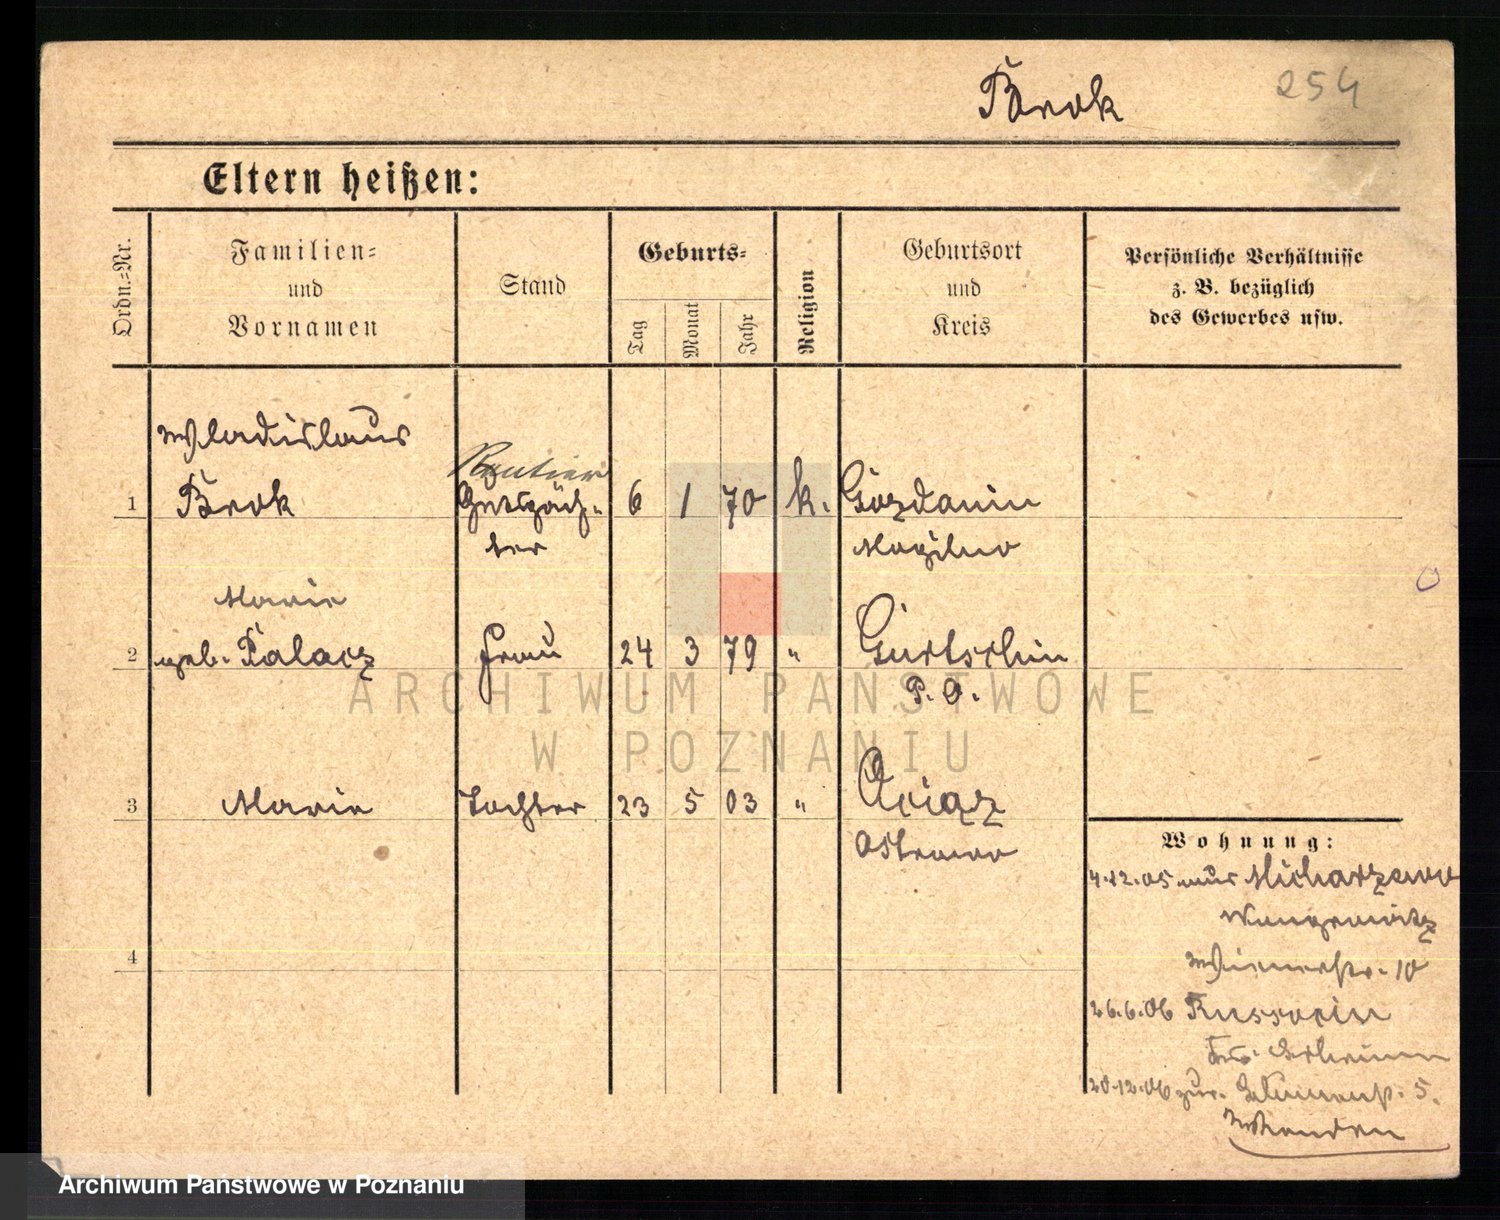 Brok 254
Eltern heißen:
Ordn.=Nr.
Familien=
und
Vornamen
Stand
Geburts=
Tag
Monat
Jahr
Religion
Geburtsort
und
Kreis
Persönliche Verhältnisse
z. B. bezüglich
des Gewerbes usw.
Wladislaus
Rentier
1 Brok Gutspäch- 6 1 70 k. Gozdanin
ter Mogilno
Marie
2 geb. Palacz Frau 24 3 79 " Gurtschin
P. O.
3 Marie Tochter 23 5 03 "
Ostrowo
Wohnung:
4.12.05 aus
10
4
26.6.06
20.12.06 zur. 5.
ARCHIWUM PAŃSTWOWE
W POZNANIU
Archiwum Państwowe w Poznaniu